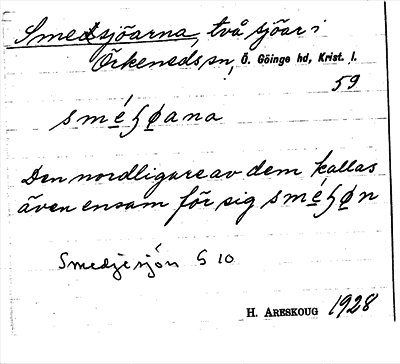 Smedsjöarna, två sjöar i
Örkeneds sn, Ö. Göinge hd, Krist. l.
59
smé̱ɧø̱ana
Den nordligare av dem kallas
även ensam för sig smé̱ɧø̱n
Smedjesjön S 10
H. Areskoug 1928